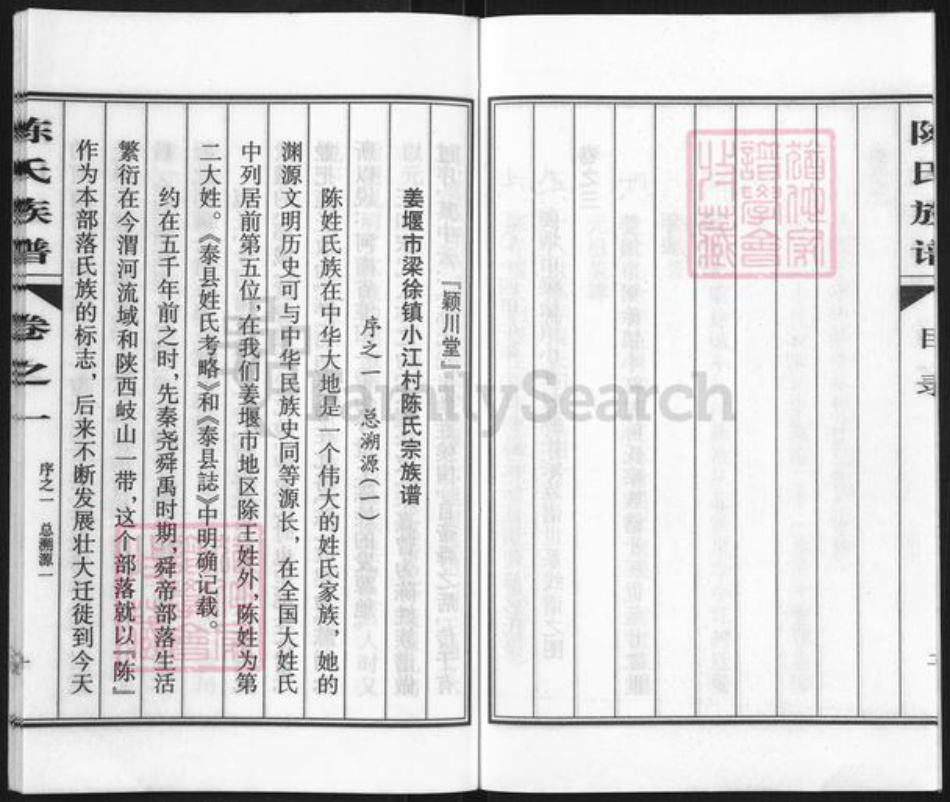 陈氏族谱
目录
『颖川堂』
姜堰市梁徐镇小江村陈氏宗族谱
序之一 总溯源(一)
陈姓氏族在中华大地是一个伟大的姓氏家族，她的
渊源文明历史可与中华民族史同等源长，在全国大姓氏
中列居前第五位，在我们姜堰市地区除王姓外，陈姓为第
二大姓。《泰县姓氏考略》和《泰县誌》中明确记载。
约在五千年前之时，先秦尧舜禹时期，舜帝部落生活
繁衍在今渭河流域和陕西岐山一带，这个部落就以『陈』
作为本部落氏族的标志，后来不断发展壮大迁徙到今天
陈氏族谱
卷之一
序之一 总溯源一
FamilySearch